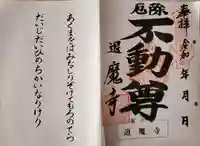 奉拝
令和 年 月 日
厄除
不動尊
退魔寺
退魔寺
あくまをばみなしりぞけてもろのてら
だいじだいひのちかいなりけり